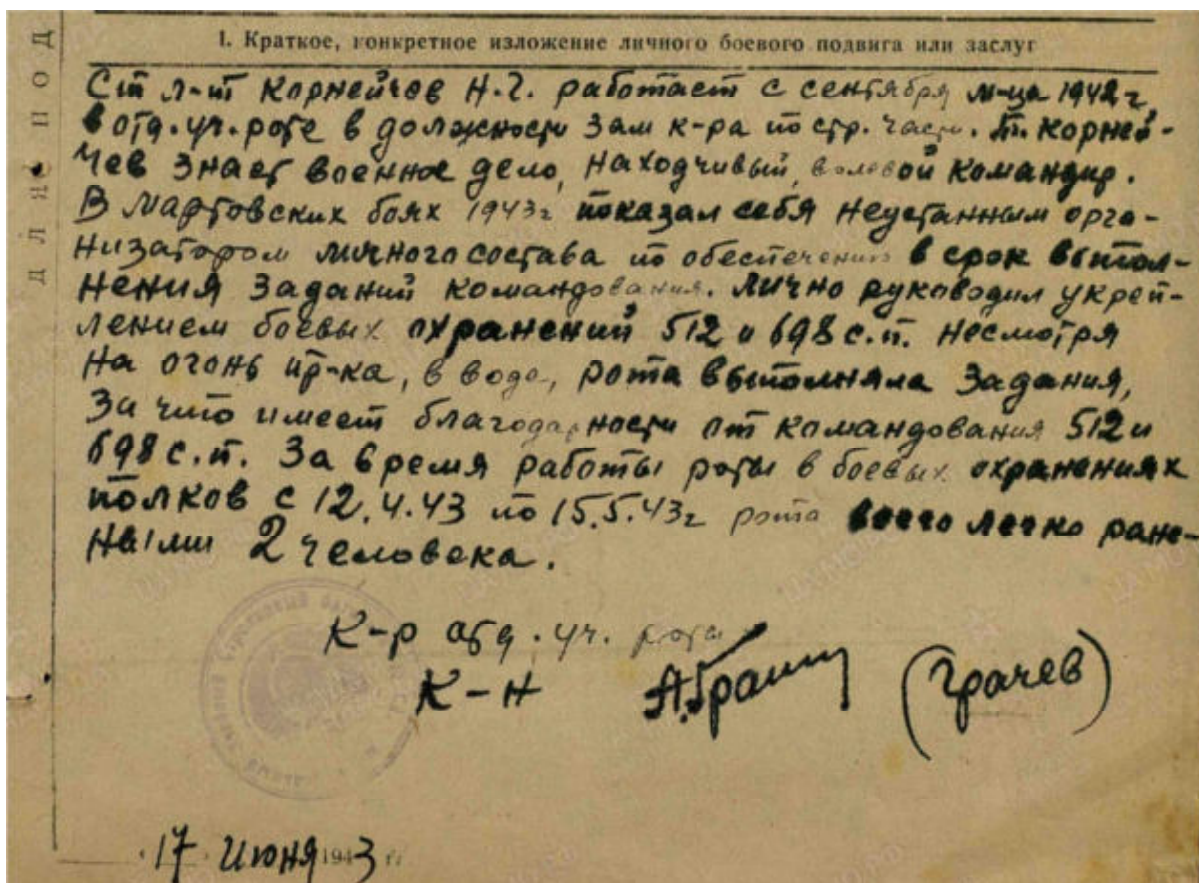 I. Краткое, конкретное изложение личного боевого подвига или заслуг
Ст л-т Корнейчев Н.Г. работает с сентября м-ца 1942 г.
в отд. уч. роте в должности зам к-ра по стр. части. т. Корней-
чев знает военное дело, находчивый, волевой командир.
В мартовских боях 1943г показал себя неустанным орга-
низатором личного состава по обеспечению в срок выпол-
нения заданий командования. Лично руководил укреп-
лением боевых охранений 512 и 698 с.п. Несмотря
на огонь пр-ка, в воде, рота выполняла задания,
за что имеет благодарности от командования 512 и
698 с.п. За время работы роты в боевых охранениях
полков с 12.4.43 по 15.5.43г рота всего легко ране-
ными 2 человека.
К-р отд. уч. роты
К-н А.Грачев (Грачев)
17 июня 1943 г.
ДЛЯ ПОД